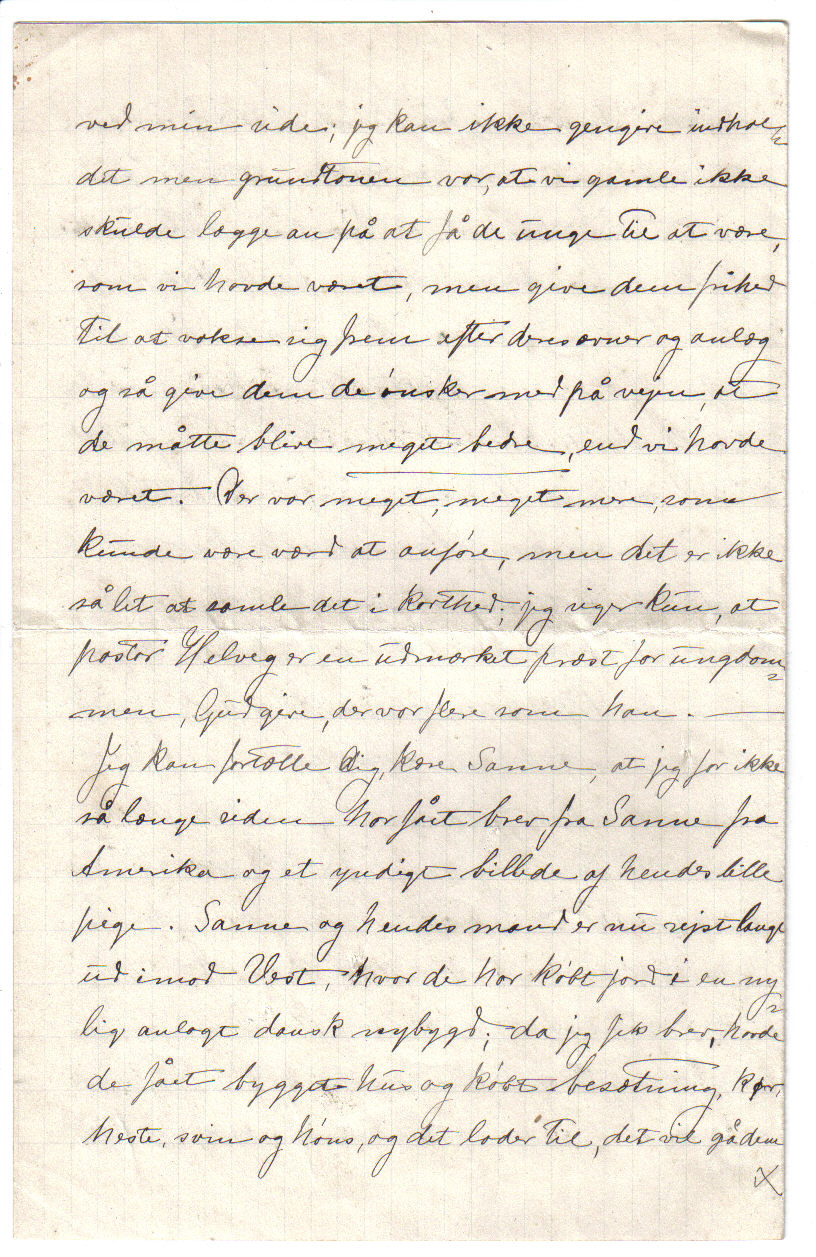 ved min side; jeg kan ikke gengive indhol-
det men grundtonen var, at vi gamle ikke
skulde lægge an på at få de unge til at være,
som vi havde været, men give dem frihed
til at vokse sig frem efter deres evner og anlæg
og så give dem de ønsker med på vejen, at
de måtte blive meget bedre, end vi havde
været. Der var meget, meget mere, som
kunde være værd at anføre, men det er ikke
så let at samle det i korthed; jeg siger kun, at
pastor Helveg er en udmærket præst for ungdom-
men, Gud give, der var flere som han. —
Jeg kan fortælle dig, kære Sanne, at jeg for ikke
så længe siden har fået brev fra Sanne fra
Amerika og et yndigt billede af hendes lille
pige. Sanne og hendes mand er nu rejst langt
ud imod Vest, hvor de har købt jord i en ny-
lig anlagt dansk nybygd; da jeg fik brev, havde
de fået bygget hus og købt besætning, køer,
heste, svin og høns, og det lader til, det vil gå dem
x